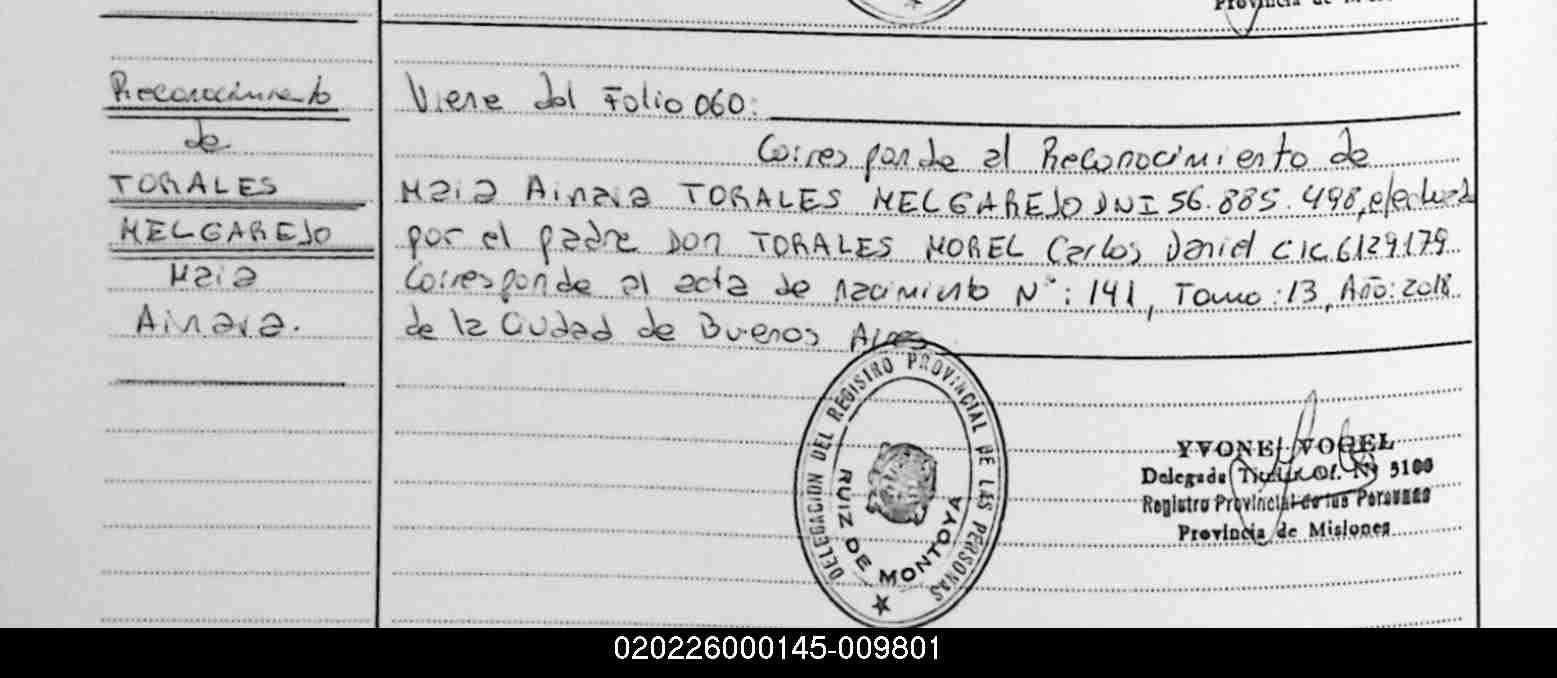 Provincia de Mis
Reconocimiento
de
TORALES
MELGAREJO
Maia
Ainara.
Viene del Folio 060:
Corresponde al Reconocimiento de
Maia Ainara TORALES MELGAREJO DNI 56.885.498, efectuado
por el padre Don TORALES MOREL Carlos Daniel CIC 6129179
Corresponde al acta de nacimiento N°: 141, Tomo: 13, Año: 2018
de la Ciudad de Buenos Aires
DELEGACION DEL REGISTRO PROVINCIAL DE LAS PERSONAS
RUIZ DE MONTOYA
YVONE VOGEL
Delegada Titular Of. Nº 5100
Registro Provincial de las Personas
Provincia de Misiones
020226000145-009801